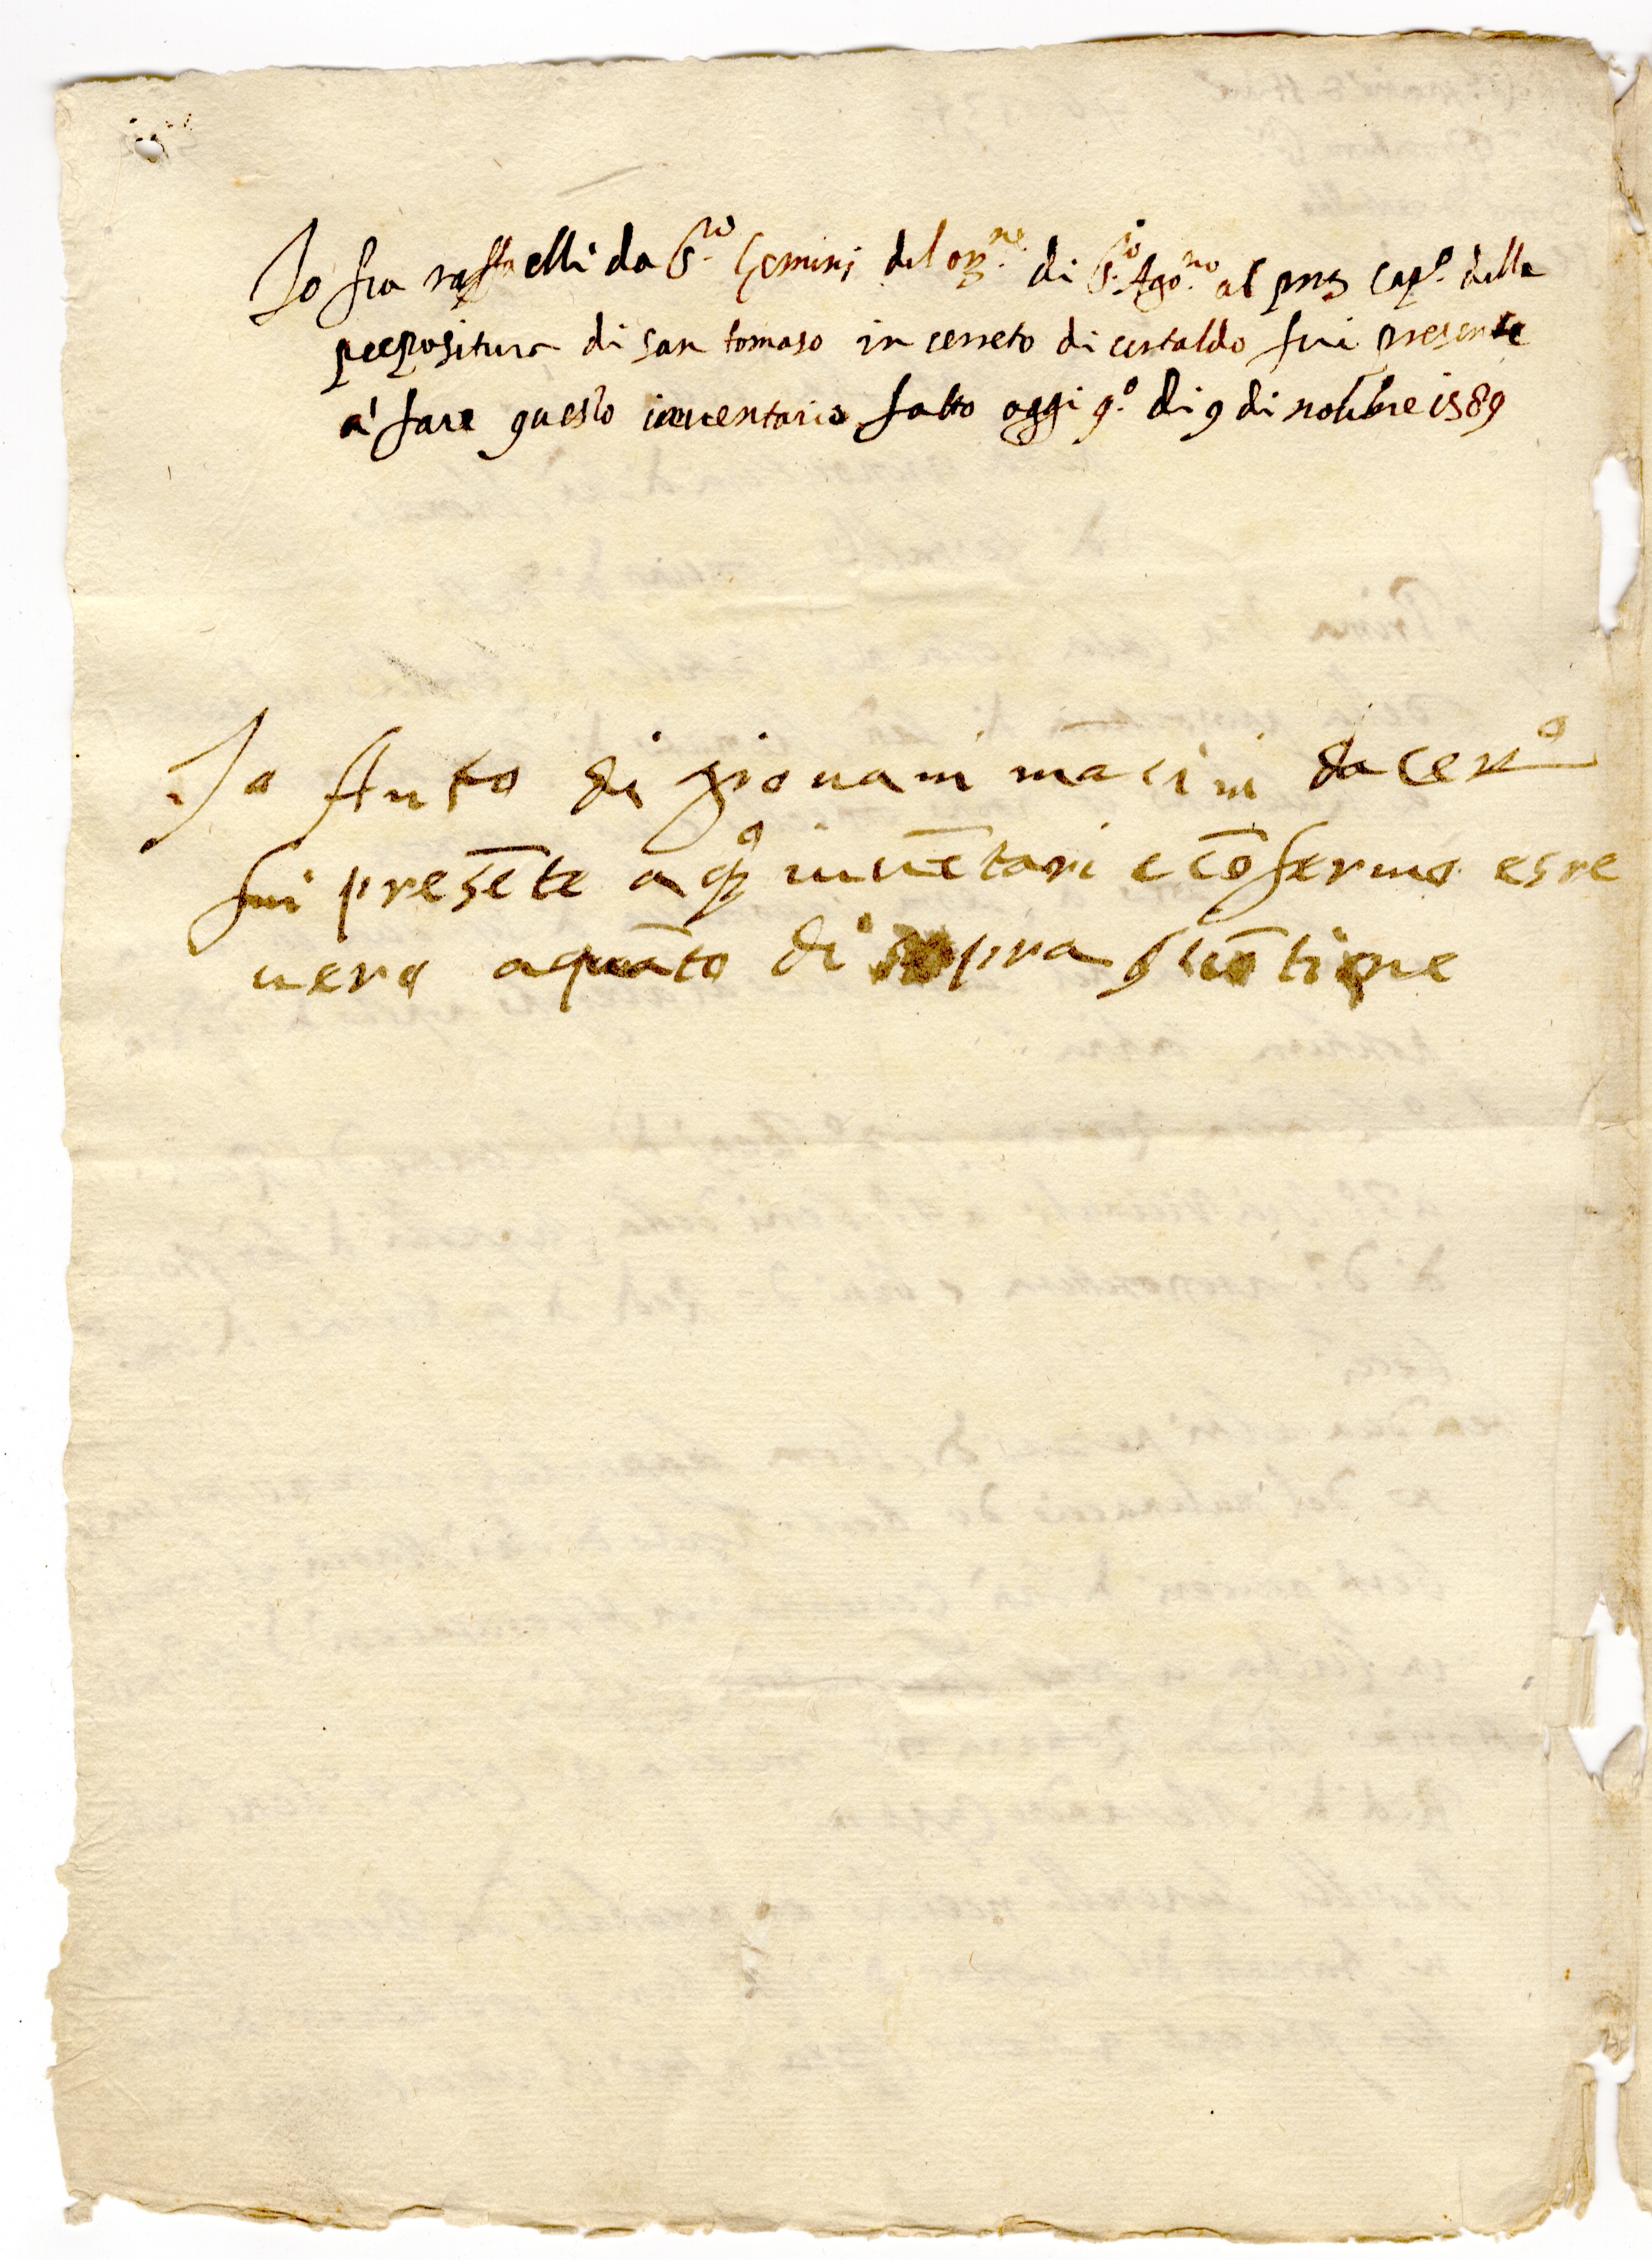 Io fra raffaelli da S.to Gemini del or.ne di S.to Ago.no al pns cap.o della
prepositura di san tomaso in cerreto di certaldo fui presente
a' fare questo inventario fatto oggi q.o di 9 di novēbre 1589
Io Anto di giovani macini da cer.o
fui presēte a q.o invētari e cōfermo esre
vero aquāto di sopra si cōtiene